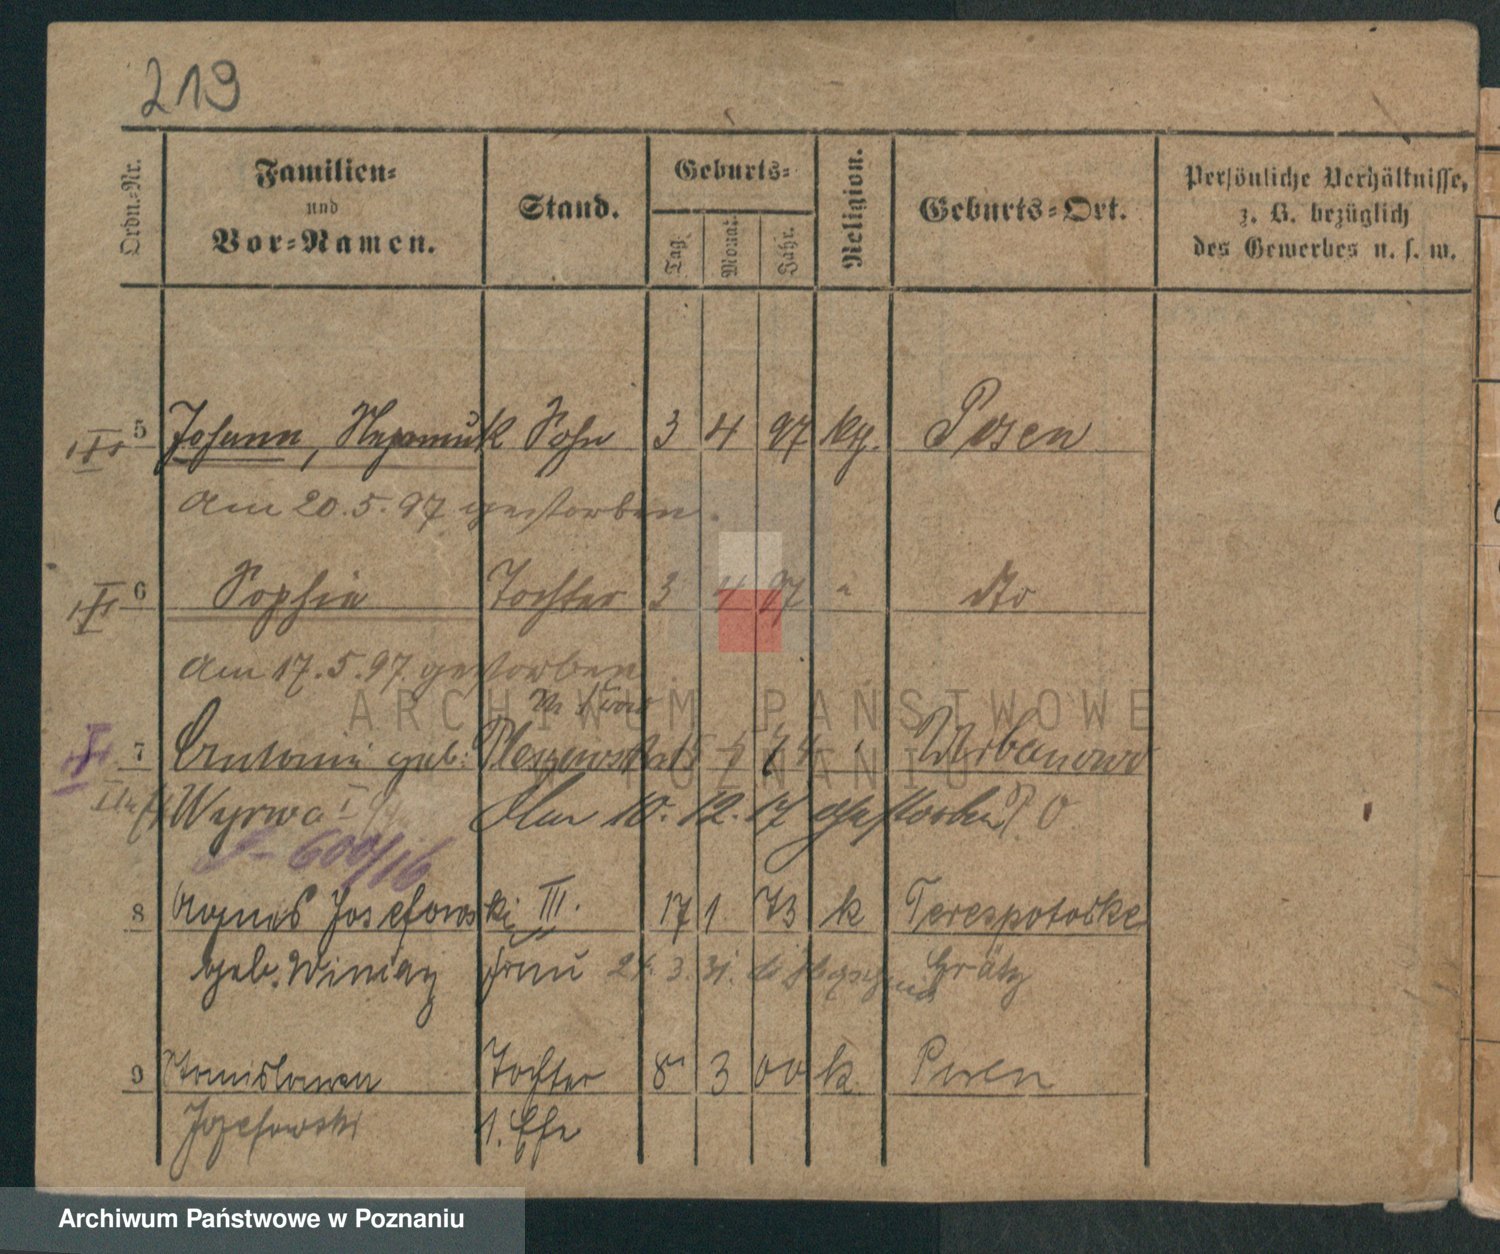 219
Ordn.-Nr.
Familien-
und
Vor-Namen.
Stand.
Geburts-
Tag.
Monat.
Jahr.
Religion.
Geburts-Ort.
Persönliche Verhältnisse,
z. B. bezüglich
des Gewerbes u. s. w.
5 Johann, Nepomuk Sohn 3 4 97 kg. Posen
am 20.5.97 gestorben.
6 Sophia Tochter 3 4 97 " dto
am 17.5.97. gestorben
II Frau
7 Antonie geb. Pleszewska 15 5 74 " Urbanowo
Wyrwa I Am 10. 12. 17 gestorben P. O
J-600/16
8 Agnes Josefowski III. 17 1 73 k Terespotoske
geb. Winiarz Frau 24. 3. 31. Grätz
9 Stanislawa Tochter 8 3 00 k. Posen
Jozefowski 1. Ehe
ARCHIWUM PAŃSTWOWE
POZNANIU
Archiwum Państwowe w Poznaniu